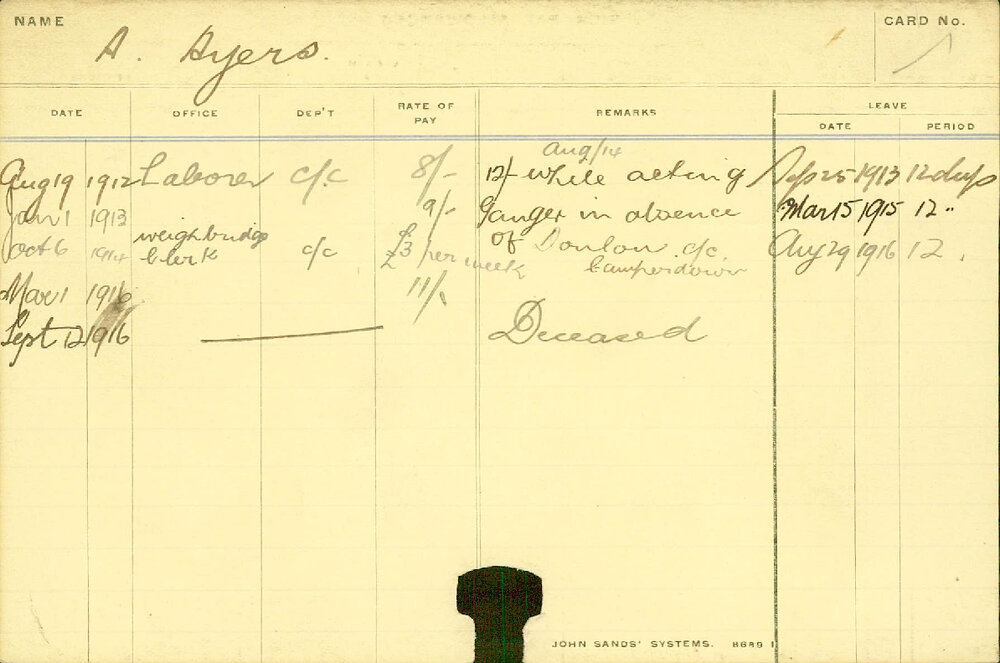 NAME
A. Ayers.
CARD No.
1
DATE OFFICE DEP'T RATE OF PAY REMARKS LEAVE
DATE PERIOD
Aug/14
Aug 19 1912 Laborer c/c 8/- 12/- while acting Sep 25 1913 12 days
Jan 1 1913 9/- Ganger in absence Mar 15 1915 12 "
Oct 6 1914 weighbridge clerk c/c £3 per week of Donlon c/c. Camperdown Aug 29 1916 12 .
Mar 1 1916 11/-
Sept 12 1916 Deceased
JOHN SANDS' SYSTEMS. 8689 1